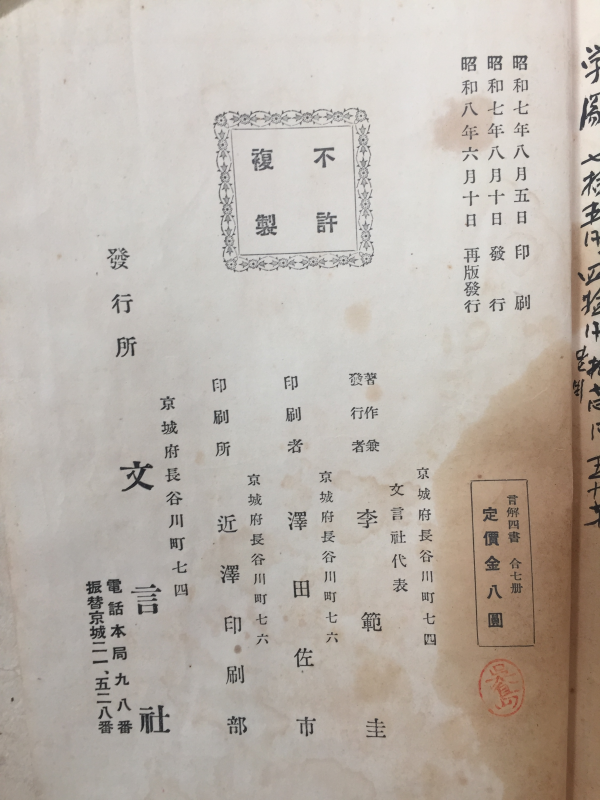 昭和七年八月五日 印刷
昭和七年八月十日 發行
昭和八年六月十日 再版發行
不許
複製
言解四書 合七册
定價金八圓
京城府長谷川町七四
文言社代表
著作兼
發行者 李範圭
京城府長谷川町七六
印刷者 澤田佐市
京城府長谷川町七六
印刷所 近澤印刷部
京城府長谷川町七四
發行所 文言社
電話本局九八番
振替京城二一、五二八番